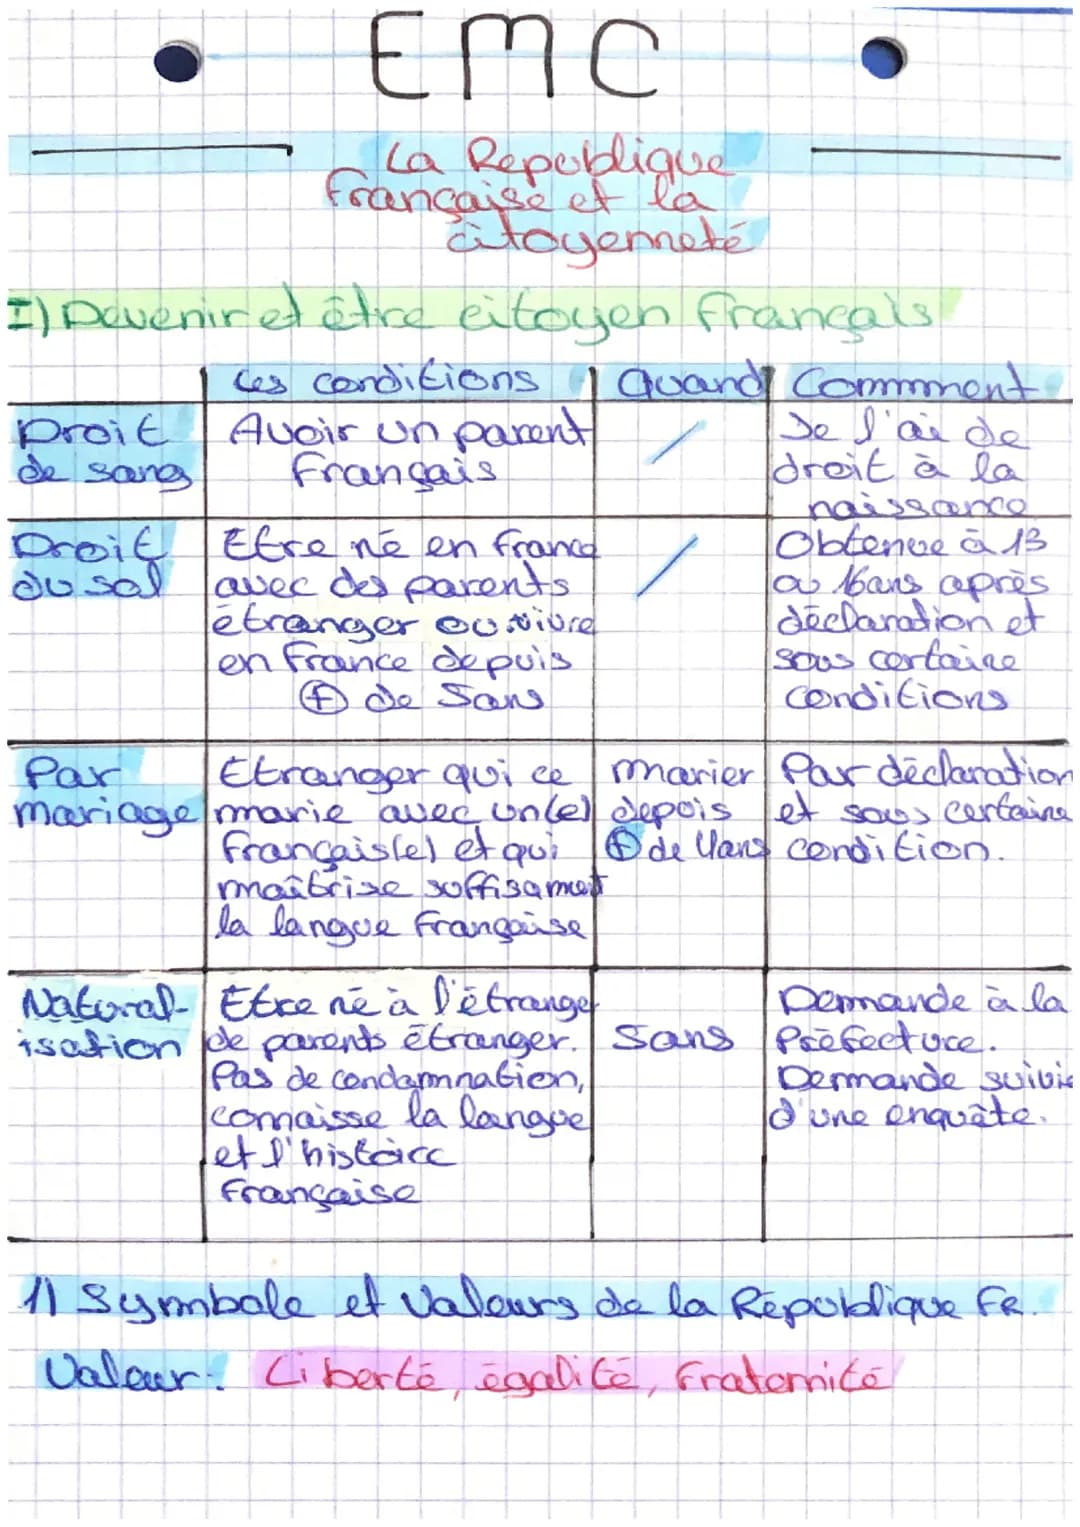 EMC
La Republique
française et la
citoyenneté
I) Devenir et être citoyen français
Les conditions Quand Commment
Droit Avoir un parent / De l'ai de
de sang français droit à la
naissance
Droit Etre né en france / Obtenue à 13
du sol avec des parents ou 16ans après
étranger ou vivre déclaration et
en france depuis sous certaine
+ de 5ans conditions
Par Etranger qui ce marier Par déclaration
mariage marie avec un(e) depuis et sous certaine
français(e) et qui + de 4ans condition.
maîtrise suffisament
la langue française
Natural- Etre né à l'étranger Demande à la
isation de parents étranger. 5ans Préfecture.
Pas de condamnation, Demande suivie
connaisse la langue d'une enquête.
et l'histoire
française
1) Symbole et Valeurs de la République FR.
Valeur: Liberté, égalité, fraternité